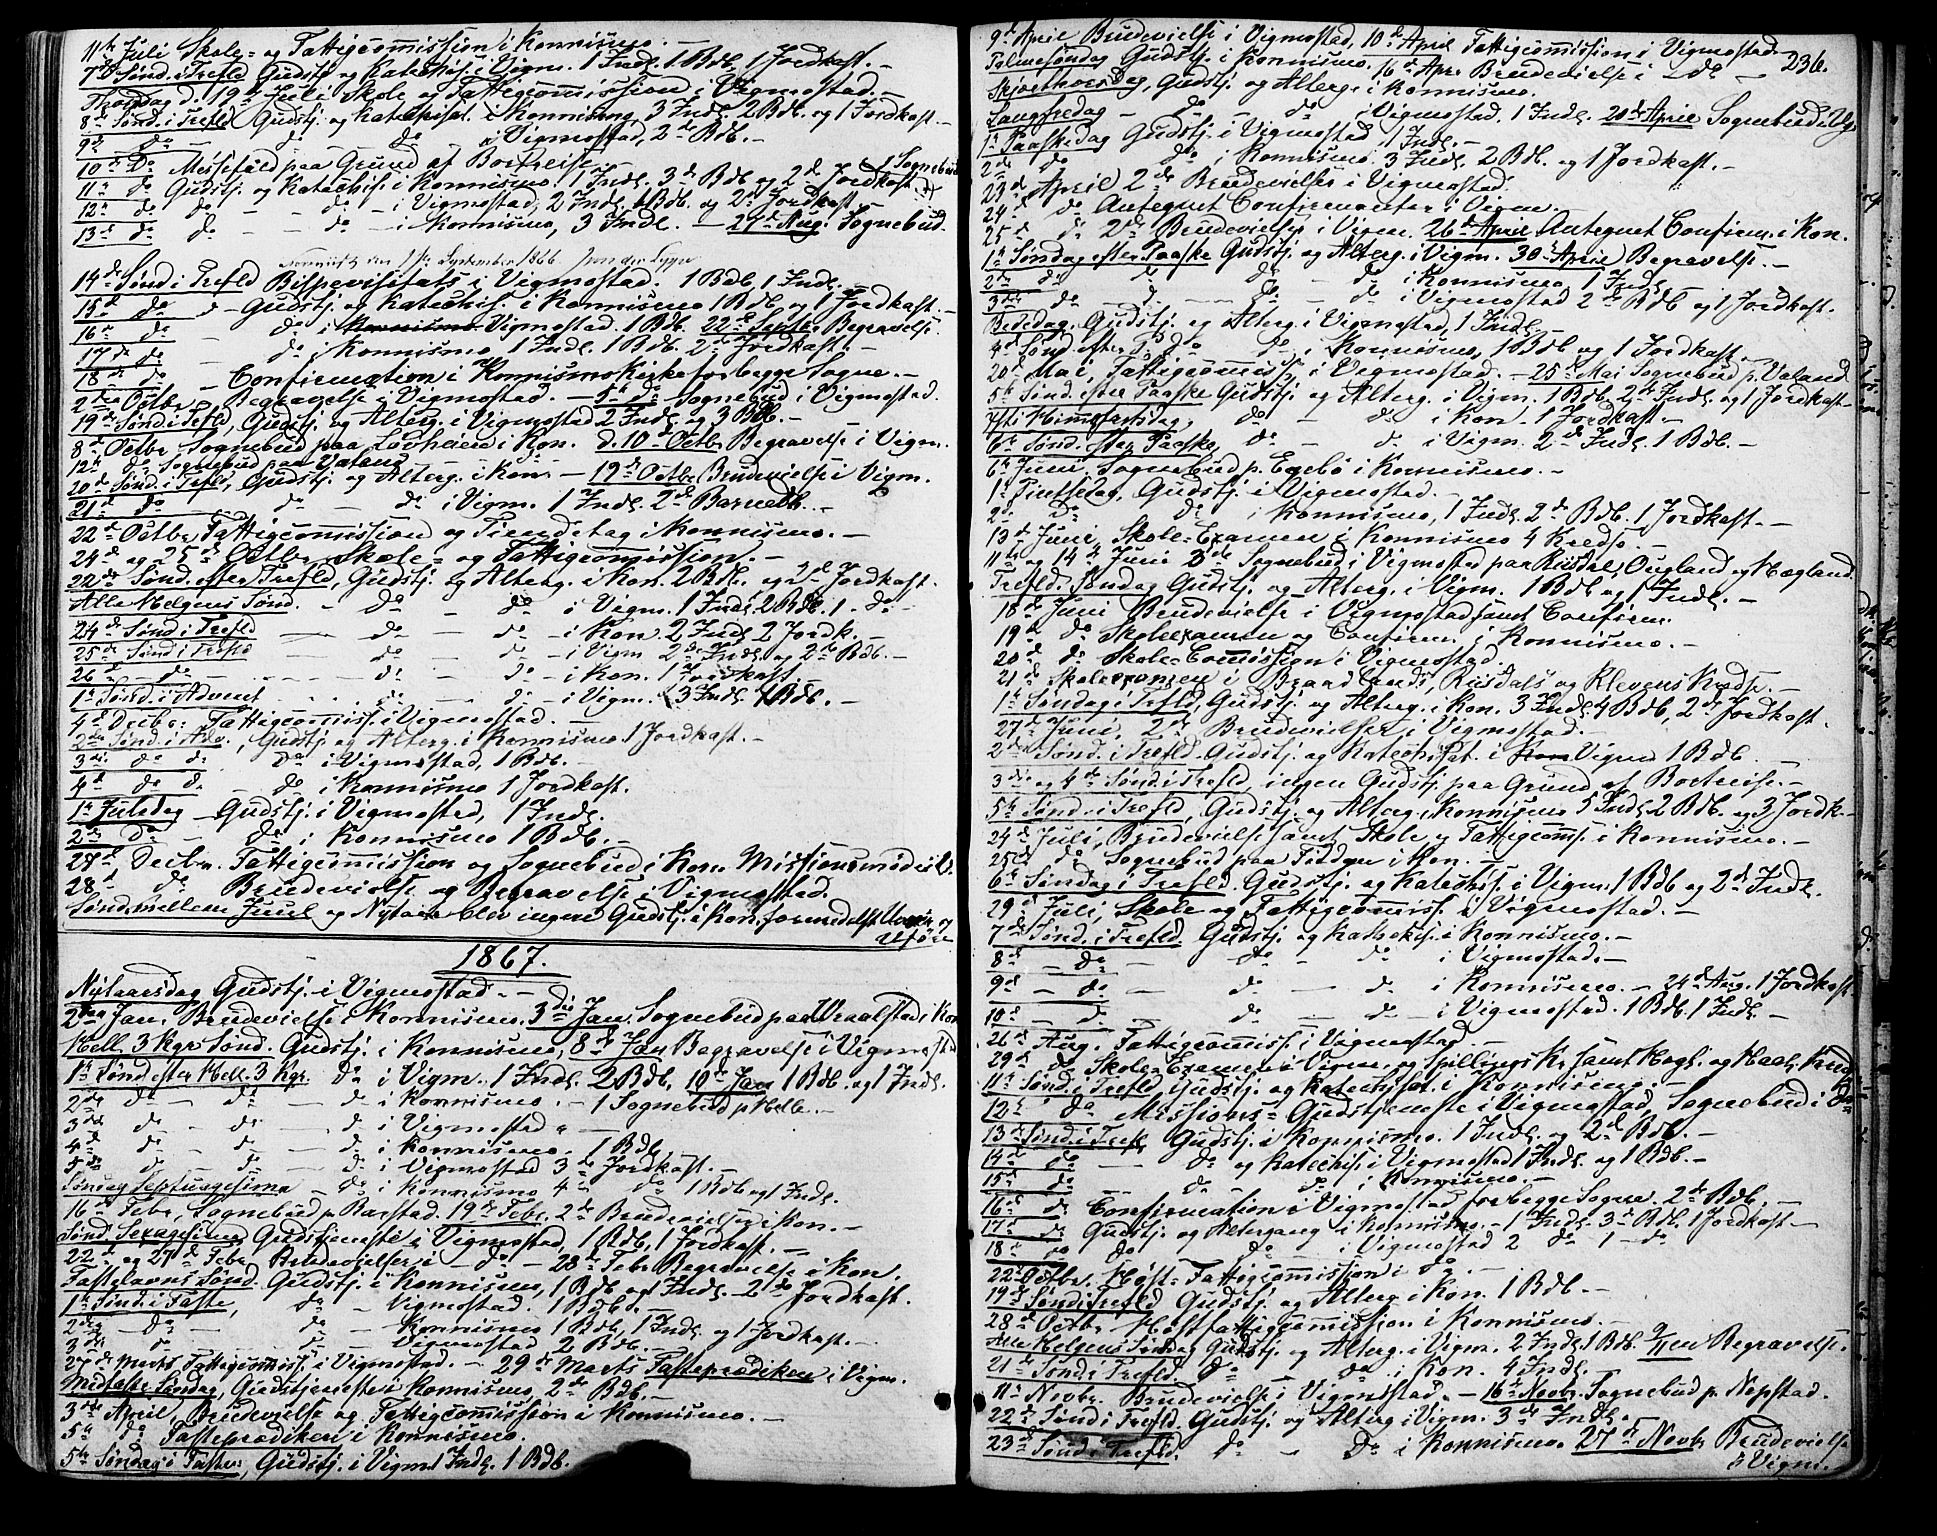 11te Juli Skole- og Fattigcomission i Konnismo. —
7de Sønd. i Trefld Gudstj og Katechis. i Vigm. 1 Indl. 1 Bdb, 1 Jordkast. —
Thorsdag d. 19de Juli Skole og Fattigcomission i Vigmostad. —
8de Sønd. i Trefld Gudstj. og Katechisat. i Konnismo, 3 Indl. 2 Bdb. og 1 Jordkast. —
9de — do — do do i Vigmostad, 2de Bdb. —
10de Do Messefald paa Grund af Bortreise. 1 Sognebud
11te do Gudstj. og Katechis. i Konnismo. 1 Indl. 3de Bdb og 2de Jordkast.
12te do do — — do — i Vigmostad, 2 Indl. 1 Bdb. og 2de Jordkast —
13de do do — — do — i Konnismo, 3 Indl. — 27de Aug. Sognebud.
den 1ste September 1866
14de Sønd i Trefld Bispevisitats i Vigmostad. 1 Bdb, 1 Indl. —
15de do — Gudstj. og Katechis. i Konnismo 1 Bdb, og 1 Jordkast. —
16de do — do i Konnismo Vigmostad. 1 Bdb. 22de Septbr Begravelse.
17de do — do i Konnismo 1 Indl. 1 Bdb. 2de Jordkast. —
18de do — Confirmation i Konnismo Kirke for begge Sogne. —
2den Octbr Begravelse i Vigmostad. — 5te do Sognebud i Vigmostad.
19de Sønd i Trefld, Gudstj. og Alterg. i Vigmostad 2 Indl. og 3 Bdb. —
8de Octbr Sognebud paa i Kon. d. 10de Octbr Begravelse i Vigm.
12te do Sognebud paa
20de Sønd. i Trefld, Gudstj. og Alterg. i Kon. — 19de Octbr Brudevielse i Vigm.
21de — do — do do i Vigm. 1 Indl. 2de Barnedb. —
22de Octbr. Fattigcomission og Tiendetag i Konnismo. —
24de og 25de Octbr. Skole- og Fattigcomission. —
22de Sønd. efter Trefld, Gudstj. og Alterg. i Kon. 2 Bdb. og 2de Jordkast.
Alle Helgens Sønd. — do — do i Vigm. 1 Indl. 2 Bdb. 1 — do —
24de Sønd i Trefld — do — do — i Kon. 2 Indl 2 Jordk. —
25de Sønd i Trefld do — do — i Vigm 2de Indl. og 2de Bdb. —
26de — do do — do — i Kon. 1 Jordkast.
1ste Sønd. i Advent do — do — i Vigm. 3 Indl 1 Bdb. —
4de Decbr: Fattigcomiss. i Vigmostad. —
2den Sønd. i Adv., Gudstj. og Alterg. i Konnismo 1 Jordkast. —
3die do do do i Vigmostad, 1 Bdb. —
4de do do — do — i Konnismo 1 Jordkast.
1ste Juledag Gudstj. i Vigmostad, 1 Indl.
2den Do — do — i Konnismo 1 Bdb. —
27de Decbr. Fattigcomission og Sognebud i Kon. Missionsmøde i V.
28de do Brudevielse og Begravelse i Vigmostad.
Sønd. mellem Juul og Nytaar blev ingen Gudstj. i Kon. formedelst
Uføre
1867.
Nytaarsdag Gudstj. i Vigmostad. —
2den Jan. Brudevielse i Konnismo. 3die Jan. Sognebud paa i Kon
Hell. 3 Kgrs Sønd. Gudstj. i Konnismo, 8de Jan Begravelse i Vigmostad
1ste Sønd efter Hell. 3 Kgr. do i Vigm. 1 Indl. 2 Bdb, 19de Jan 1 Bdb. og 1 Indl.
2den do — do — do i Konnismo. — 1 Sognebud p. Helle. —
3die do — do — do i Vigmostad
4de do do do i Konnismo. 1 Bdb.
5te do do do i Vigmostad 3de Jordkast. —
Søndag Septuagesima — do i Konnismo 4 — do 1 Bdb og 1 Indl.
16de Febr, Sognebud p. 19de Febr. 2de Brudevielser i Kon. —
Sønd. Sexagesima, Gudstjeneste i Vigmostad, 1 Bdb, 1 Jordkast. —
22de og 27de Febr Brudevielser i — do — 28de Febr Begravelse i Kon.
Fastelavns Sønd. Gudstj. i Konnismo, 1 Bdb og 1 Indl. 2de Jordkast.
1ste Sønd. i Faste, do — Vigmostad. 1 Bdb. —
2den — do — do — Konnismo 1 Bdb, 1 Indl. og 1 Jordkast. —
3die do do — Vigmostad 2 Bdb. —
27de Marts, Fattigcomiss. i Vigmostad. — 29de Marts Fasteprædiken i Vigm.
Midfaste Søndag, Gudstjeneste i Konnismo, 2de Bdb. —
3die April Brudevielse og Fattigcomission i Konnismo. —
5te do Fasteprædiken i Konnismo.
5te Søndag i Faste, Gudstj. i Vigm. 1 Indl. 1 Bdb.
236.
9de April Brudevielse i Vigmostad, 10de April Fattigcomission i Vigmostad —
Palmesøndag Gudstj. i Konnismo. 16de Apr. Brudevielse i — do —
Skjærthorsdag, Gudstj. og Alterg. i Konnismo.
Langfredag — do — do i Vigmostad, 1 Indl. 20de April Sognebud i Vgm
1ste Paaskedag Gudstj. i Vigmostad 1 Indl. —
2de do do i Konnismo. 3 Indl. 2 Bdb. og 1 Jordkast. —
23de April 2de Brudevielser i Vigmostad.
24de do Antegnet Confirmanter i Vigm. —
25de do 2de Brudevielser i Vigm. 26de April Antegnet Confirm. i Kon.
1ste Søndag efter Paaske Gudstj. og Alterg. i Vigm. 30te April Begravelse. —
2den do do do — do i Konnismo, 1 Indl.
3die do do — do — do i Vigmostad 2de Bdb og 1 Jordkast.
Bededag, Gudstj. og Alterg. i Vigmostad, 1 Indl. —
4de Sønd efter P. do do i Konnismo, 1 Bdb og 1 Jordkast. —
20de Mai, Fattigcomiss. i Vigmostad. — 25de Mai Sognebud p. Valand
5te Sønd. efter Paaske Gudstj. og Alterg. i Vigm. 1 Bdb, 2de Indl. og 1 Jordkast —
Christi Himmelfartsdag, do — do i Kon. 1 Jordkast. —
6te Sønd. efter Paaske do — do i Vigm. 2de Indl. 1 Bdb. —
6te Juni. Sognebud p. Egebø i Konnismo. —
1ste Pintsedag, Gudstj. i Vigmostad. —
2den Do do i Konnismo, 1 Indl. 2de Bdb. 1 Jordkast. —
13de Juni, Skole-Examen i Konnismo 4 Kredse. —
11te og 14de Juni 3de Sognebud i Vigmostad paa Risdal, Ougland og Hægland.
Trefld. Søndag Gudstj. og Alterg. i Vigm. 1 Bdb og 1 Indl. —
18de Juni Brudevielse i Vigmostad samt Confirm.
19de do Skoleexamen og Confirm. i Konnismo. —
20de do Skole-Comission i Vigmostad
21de Skoleexamen i Braadlands, Risdals og Klevens Kredse. —
1ste Søndag i Trefld, Gudstj. og Alterg. i Kon. 3 Indl. 4 Bdb, 2de Jordkast. —
27de Juni, 2de Brudevielser i Vigmostad. —
2den Sønd. i Trefld. Gudstj. og Katechisat. i Kon Vigm 1 Bdb. —
3die og 4de Sønd. i Trefld, ingen Gudstj. paa Grund af Bortreise. —
5te Sønd. i Trefld, Gudstj. og Alterg. i Konnismo 5 Indl. 2 Bdb. og 3 Jordk. —
24de Juli, Brudevielse samt Skole og Fattigcoms. i Konnismo. —
25de do Sognebud paa i Kon. —
6te Søndag i Trefld. Gudstj. og Katechis. i Vigm. 1 Bdb og 2de Indl. —
29de Juli, Skole og Fattigcomiss. i Vigmostad. —
7de Sønd. i Trefld. Gudstj. og Katechis. i Konnismo. —
8de — do — do — do i Vigmostad. —
9de — do — do — do i Konnismo. — 24de Aug. 1 Jordkast.
10de — do — do — do i Vigmostad. 1 Bdb. 1 Indl. —
26de Aug. Fattigcomiss. i Vigmostad. —
29de do Skole-Examen i Vigm. og Spillings Kr. samt Hægl. og Kreds
11te Sønd. i Trefld, Gudstj. og Katechisat. i Konnismo. —
12te do Missions-Gudstjeneste i Vigmostad, Sognebud i do
13de Sønd i Trefld Gudstj. i Konnismo. 1 Indl. og 2de Bdb. —
14de do — do og Katechis. i Vigmostad 1 Indl. og 1 Bdb. —
15de do — do do i Konnismo.
16de do Confirmation i Vigmostad for begge Sogne. 2de Bdb, —
17de do Gudstj. og Altergang i Konnismo. — 1 Indl. 3de Bdb. 1 Jordkast —
18de do do do — i Vigmostad 2 do 1 — do
22de Octbr. Høst-Fattigcomission i do —
19de Sønd i Trefld Gudstj. og Alterg i Kon. 1 Bdb. —
28de Octbr Høstfattigcomission i Konnismo. —
Alle Helgens Søndag Gudstj. og Alterg. i Vigm. 2 Indl. 1 Bdb. Begravelse.
21de Sønd i Trefld. do — do i Kon. 4 Indl.
11te Novbr. Brudevielse i Vigmostad. — 16de Novbr. Sognebud p. Nepstad.
22de Sønd i Trefld. Gudstj. og Alterg i Vigm. 3de Indl. —
23de Sønd i Trefld. do — Do i Konnismo. 27de Novbr Brudevielse
i Vigm.